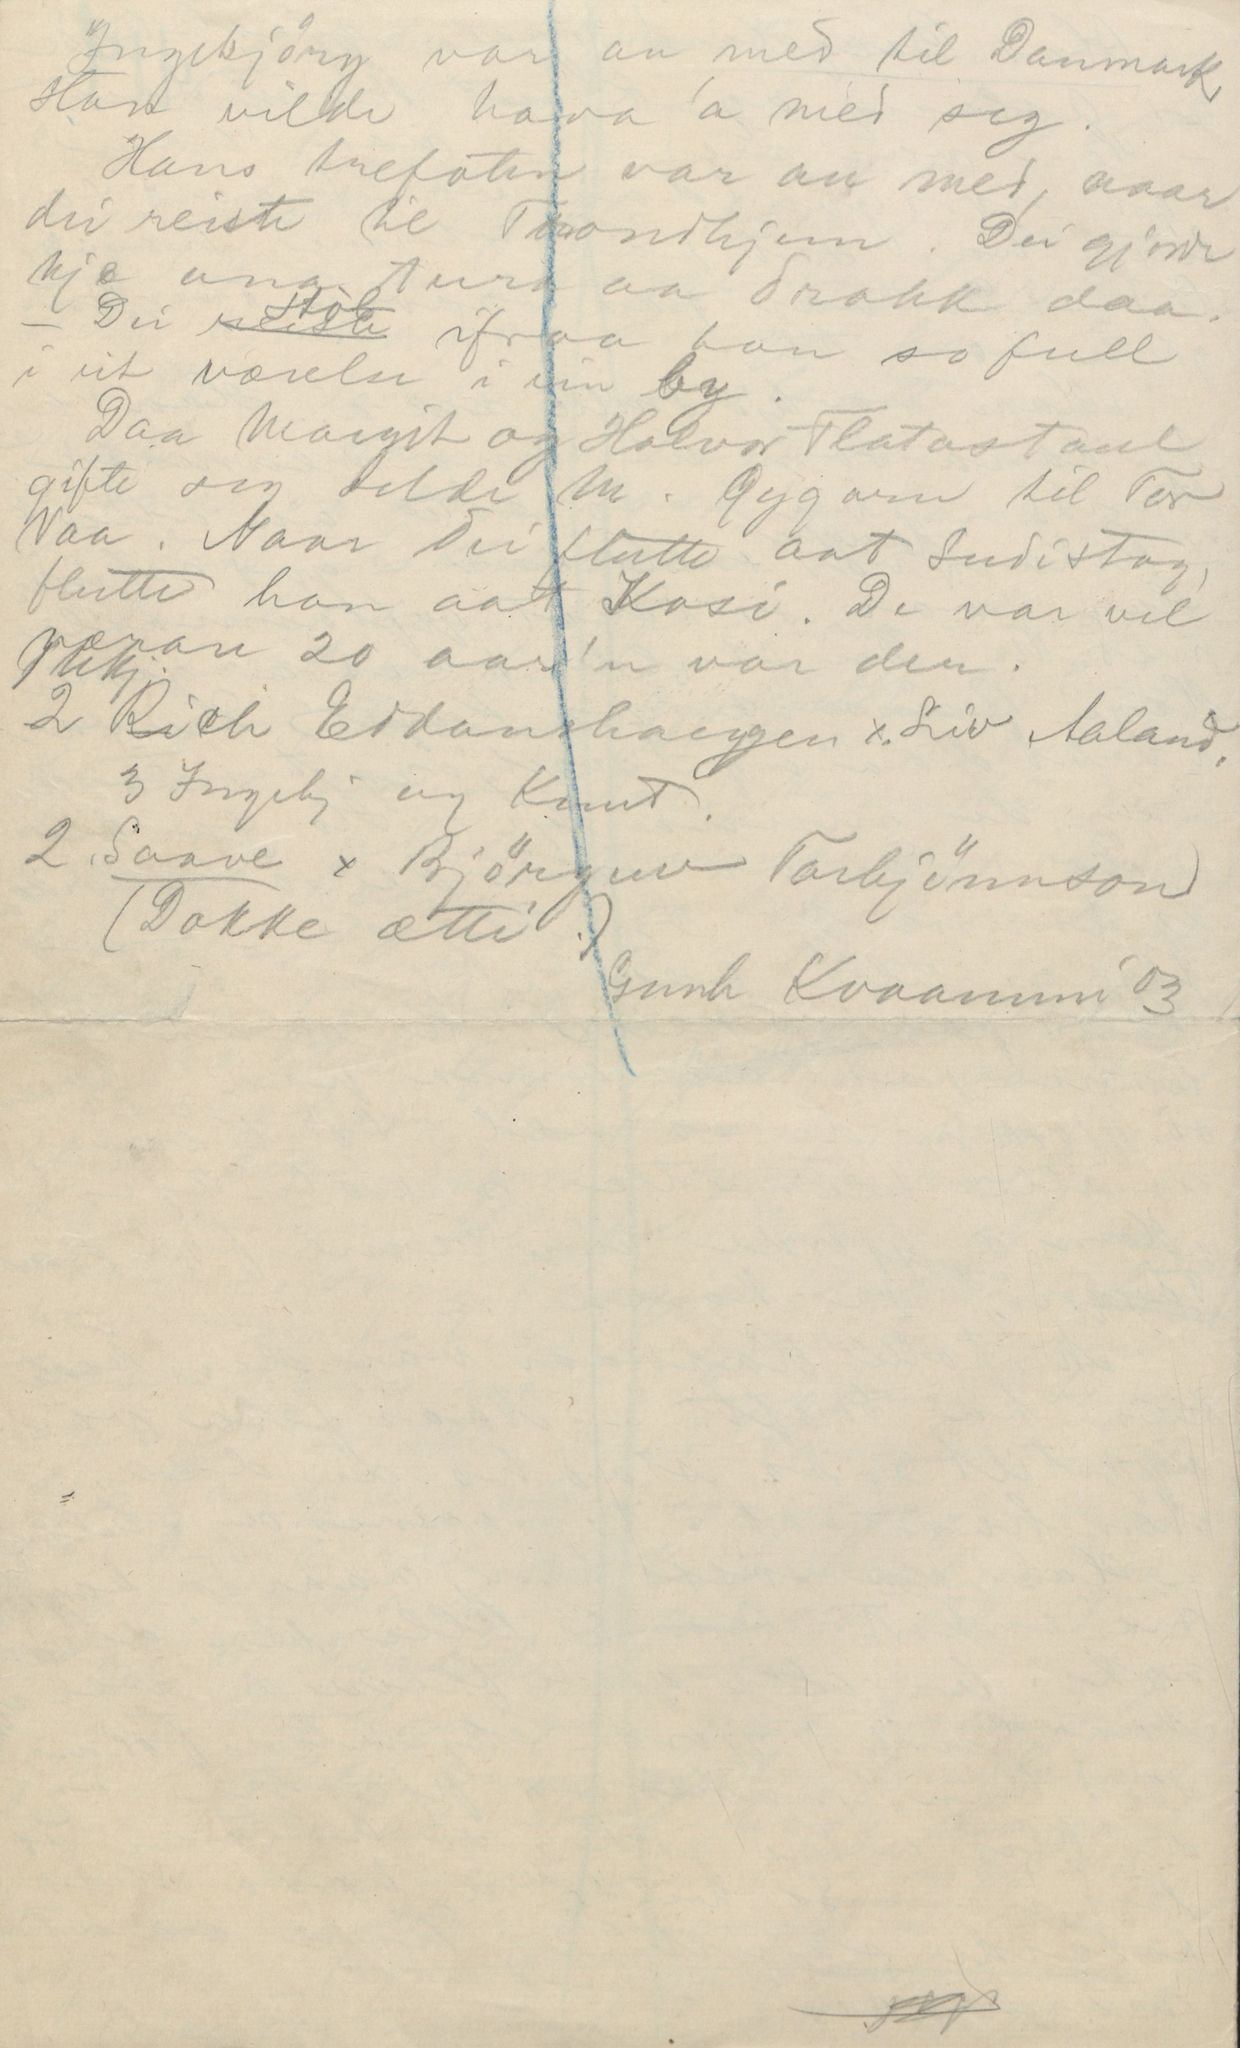 Ingebjörg var au med til Danmark,
Han vilde hava 'a med seg.
Hans trefoten var au med, naar
dei reiste til Trondhjem. Dei gjorde
kje ana tura aa drakk daa.
stól
– Dei reiste ifraa han so full
i eit værelse i ein by.
Daa Margit og Halvor Flatastaul
gifte seg selde M. Gygarn til Tor
Vaa. Naar dei flutte aat Sudistog,
flutte han aat Kasi. De var vel
nærare 20 aar 'n var der.
2 Rich Eddanshaugen x. Liv Aaland.
3 Ingebj og Knut.
2. Saave x Björguv Torbjönnson
(Dokke ætti.)
Gunh Kvaammi '03